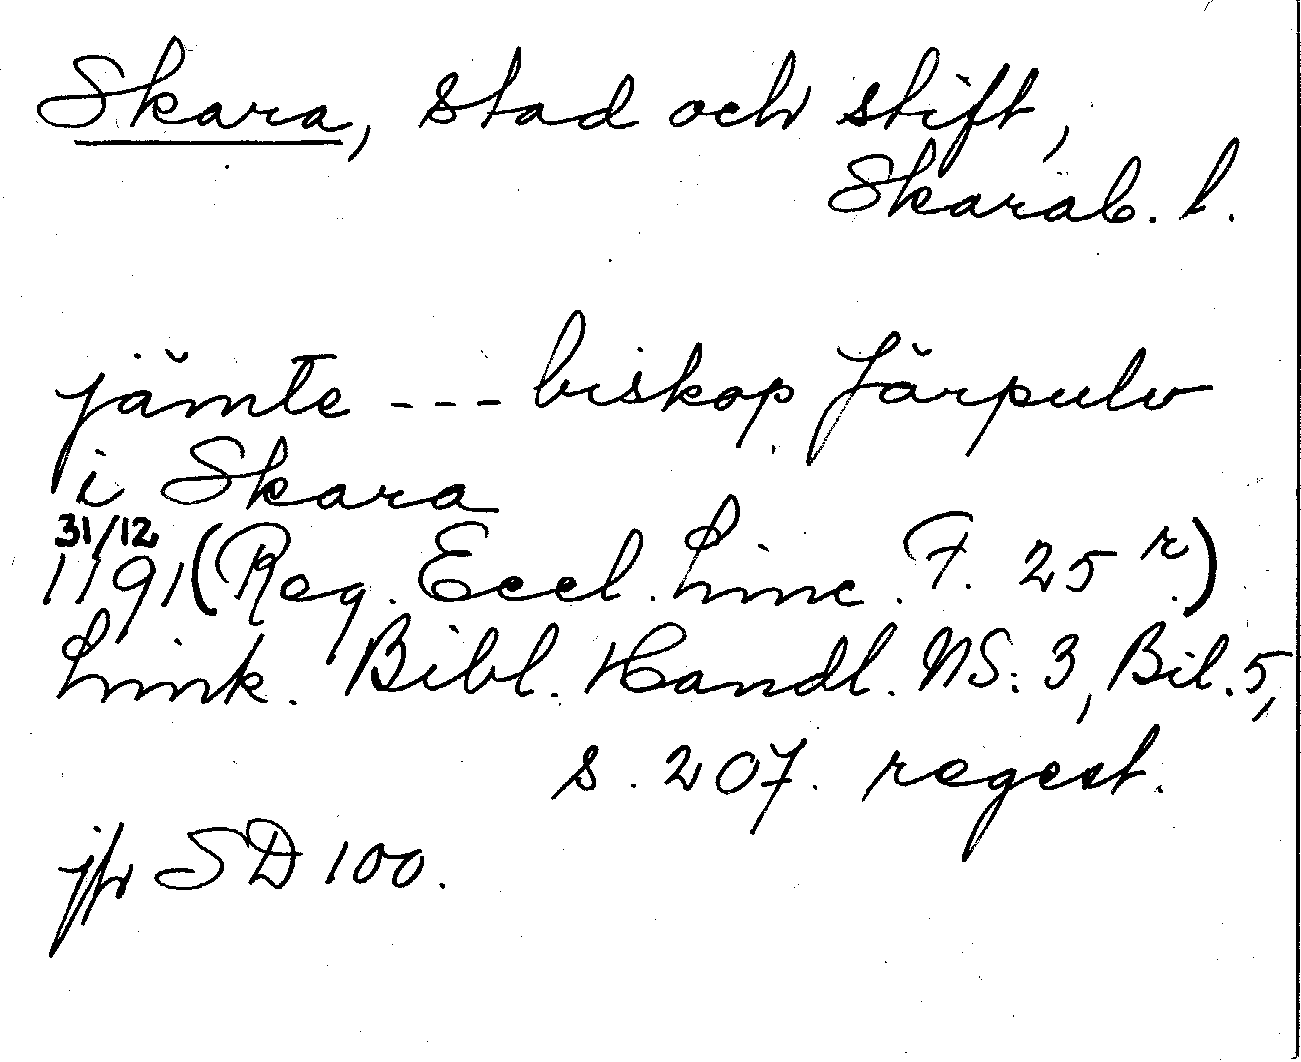 Skara, stad och stift,
Skarab. l.
jämte --- biskop Järpulv
i Skara
31/12
1191 (Reg. Eccl. Linc. F. 25 r.)
Link. Bibl. Handl. NS: 3, Bil. 5,
s. 207. regest.
jfr SD 100.